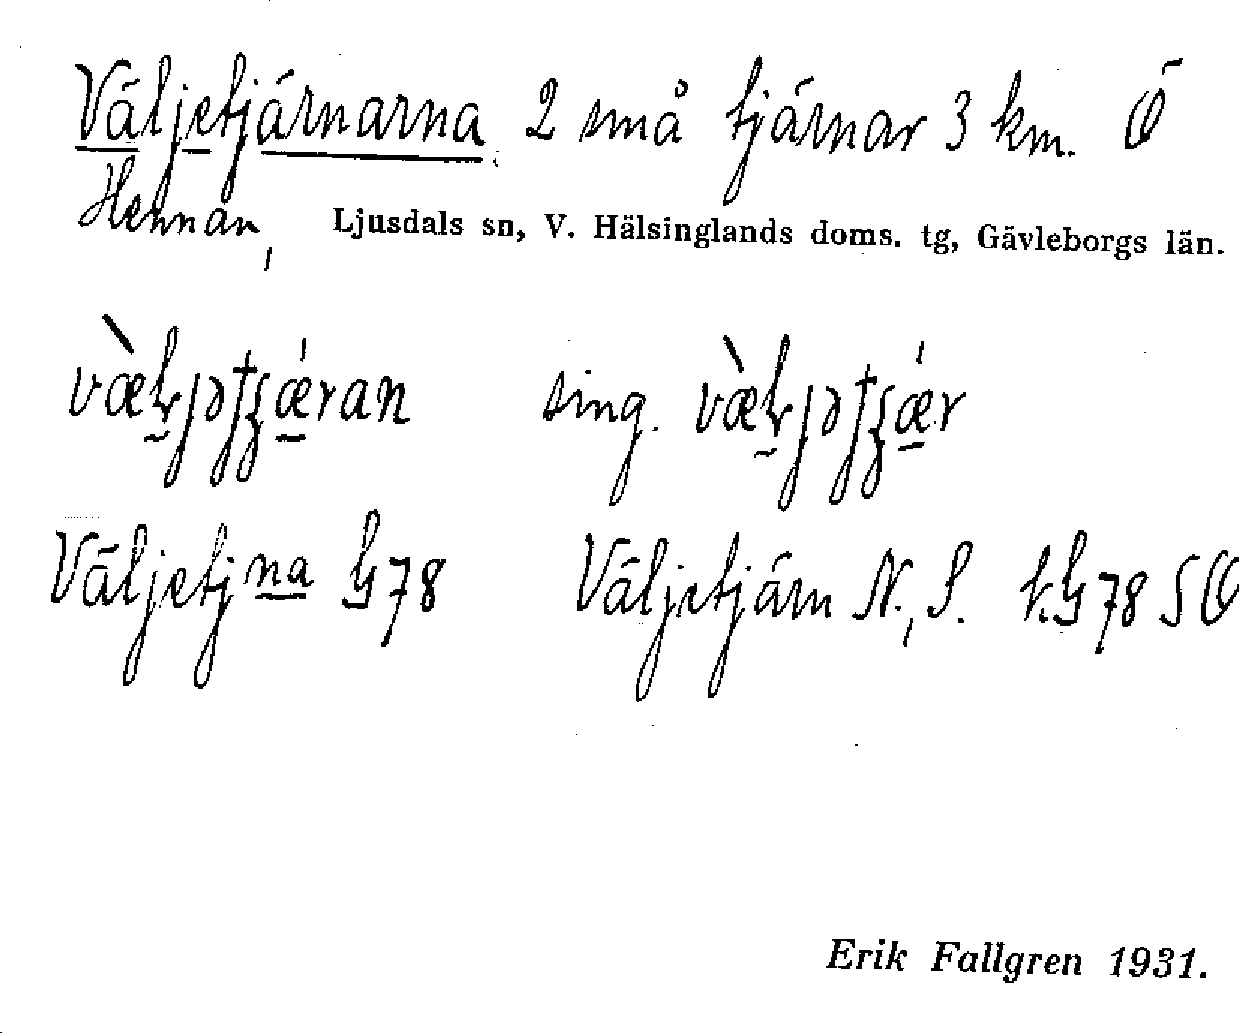 Väljetjärnarna, 2 små tjärnar 3 km. Ö
Hennan, Ljusdals sn, V. Hälsinglands doms. tg, Gävleborgs län.
sing.
Väljetjna G78 Väljetjärn N., S. k.G78 SÖ
Erik Fallgren 1931.